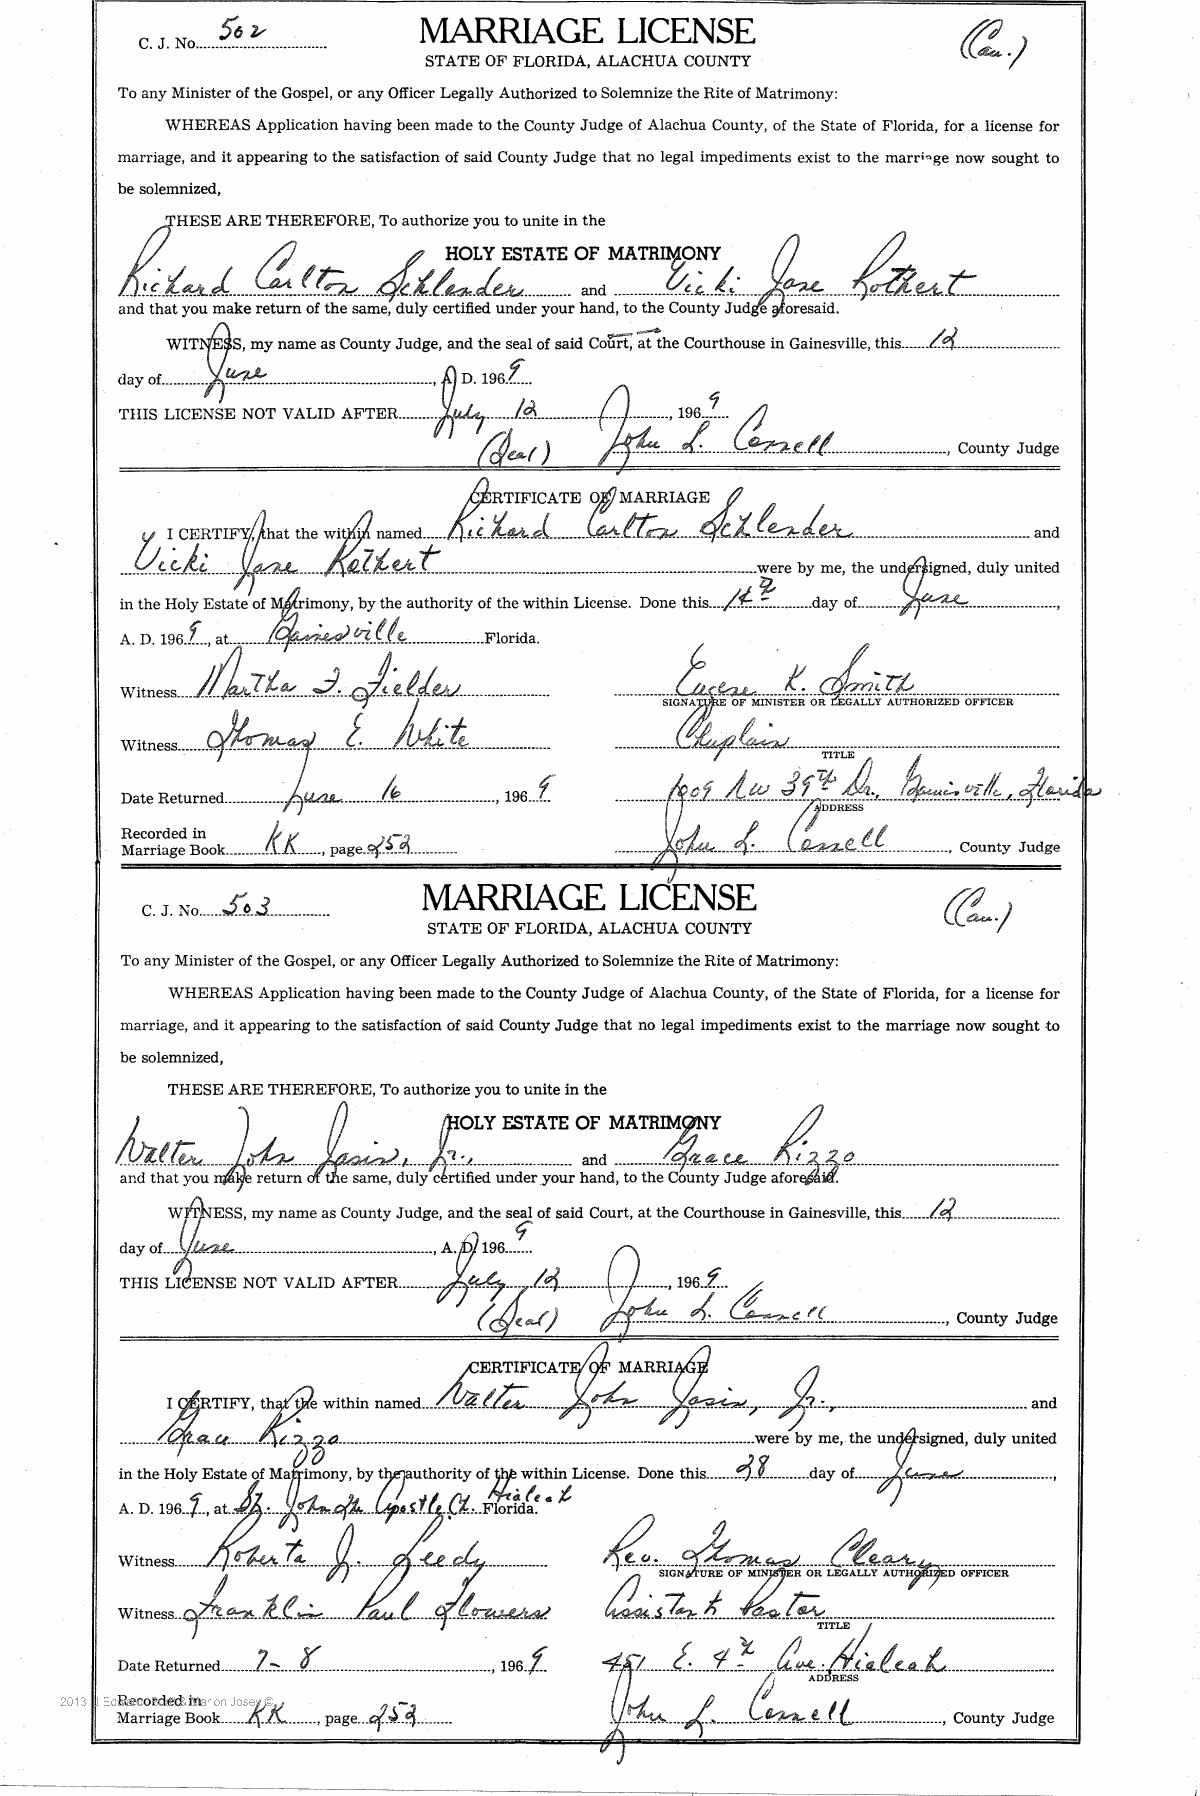 C. J. No. 502 MARRIAGE LICENSE (Cau.)
STATE OF FLORIDA, ALACHUA COUNTY
To any Minister of the Gospel, or any Officer Legally Authorized to Solemnize the Rite of Matrimony:
WHEREAS Application having been made to the County Judge of Alachua County, of the State of Florida, for a license for
marriage, and it appearing to the satisfaction of said County Judge that no legal impediments exist to the marriage now sought to
be solemnized,
THESE ARE THEREFORE, To authorize you to unite in the
HOLY ESTATE OF MATRIMONY
Richard Carlton Schlender and Vicki Jane Rothert
and that you make return of the same, duly certified under your hand, to the County Judge aforesaid.
WITNESS, my name as County Judge, and the seal of said Court, at the Courthouse in Gainesville, this 12
day of June, A. D. 1969
THIS LICENSE NOT VALID AFTER July 12, 1969
(Seal) John L. Connell, County Judge
CERTIFICATE OF MARRIAGE
I CERTIFY, that the within named Richard Carlton Schlender and
Vicki Jane Rothert were by me, the undersigned, duly united
in the Holy Estate of Matrimony, by the authority of the within License. Done this 14th day of June,
A. D. 1969, at Gainesville Florida.
Witness Martha F. Fielder Eugene K. Smith
SIGNATURE OF MINISTER OR LEGALLY AUTHORIZED OFFICER
Witness Thomas E. White Chaplain
TITLE
Date Returned June 16, 1969 1909 NW 39th Dr., Gainesville, Florida
ADDRESS
Recorded in
Marriage Book KK, page 252 John L. Connell, County Judge
C. J. No. 503 MARRIAGE LICENSE (Cau.)
STATE OF FLORIDA, ALACHUA COUNTY
To any Minister of the Gospel, or any Officer Legally Authorized to Solemnize the Rite of Matrimony:
WHEREAS Application having been made to the County Judge of Alachua County, of the State of Florida, for a license for
marriage, and it appearing to the satisfaction of said County Judge that no legal impediments exist to the marriage now sought to
be solemnized,
THESE ARE THEREFORE, To authorize you to unite in the
HOLY ESTATE OF MATRIMONY
Walter John Jasin, Jr., and Grace Rizzo
and that you make return of the same, duly certified under your hand, to the County Judge aforesaid.
WITNESS, my name as County Judge, and the seal of said Court, at the Courthouse in Gainesville, this 12
day of June, A. D. 1969
THIS LICENSE NOT VALID AFTER July 12, 1969
(Seal) John L. Connell, County Judge
CERTIFICATE OF MARRIAGE
I CERTIFY, that the within named Walter John Jasin, Jr., and
Grace Rizzo were by me, the undersigned, duly united
in the Holy Estate of Matrimony, by the authority of the within License. Done this 28 day of June,
A. D. 1969, at St. John the Apostle Ch. Hialeah Florida.
Witness Roberta J. Leedy Rev. Thomas Cleary
SIGNATURE OF MINISTER OR LEGALLY AUTHORIZED OFFICER
Witness Franklin Paul Flowers Assistant Pastor
TITLE
Date Returned 7-8, 1969 451 E. 4th Ave. Hialeah
ADDRESS
Recorded in
Marriage Book KK, page 252 John L. Connell, County Judge
2013